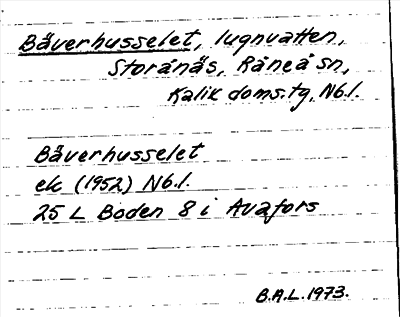 Bäverhusselet, lugnvatten,
Storånäs, Råneå sn,
Kalix doms.tg, Nb.l.
Bäverhusselet
ek (1952) Nb.l.
25 L Boden 8 i Avafors
B.A.L. 1973.